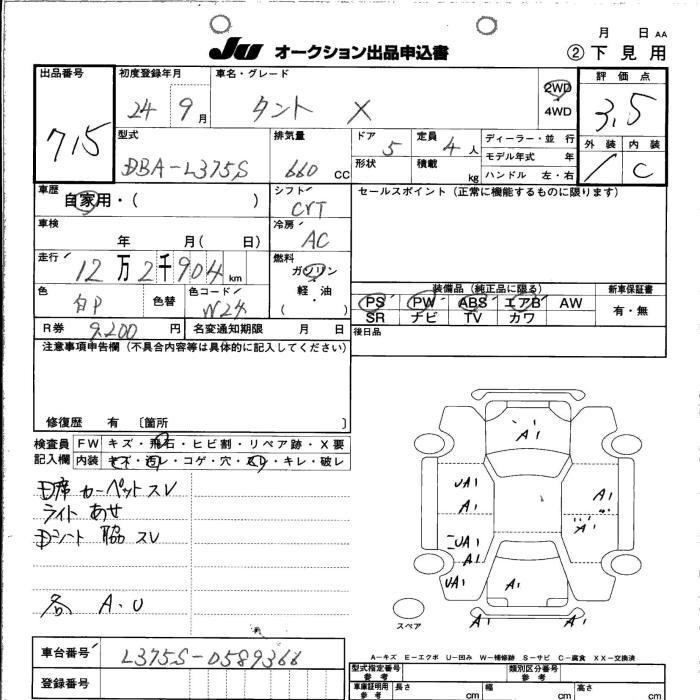 JU オークション出品申込書
月 日 AA
② 下見用
出品番号 715
初度登録年月 24 9月
車名・グレード タント X
2WD
4WD
評価点 3.5
外装 / 内装 C
型式 DBA-L375S
排気量 660 CC
ドア 5
形状
定員 4人
積載 kg
ディーラー・並行
モデル年式 年
ハンドル 左・右
車歴 自家用・( )
シフト CVT
セールスポイント (正常に機能するものに限ります)
車検 年 月( 日)
冷房 AC
走行 12万2千904km
燃料 ガソリン
軽・油
( )
色 白P 色替
色コード W24
装備品 (純正品に限る)
PS PW ABS エアB AW
SR ナビ TV カワ
新車保証書
有・無
R券 9,200円 名変通知期限 月 日
後日品
注意事項申告欄 (不具合内容等は具体的に記入してください)
修復歴 有 〔箇所 〕
検査員記入欄
FW キズ・飛石・ヒビ割・リペア跡・X要
内装 キズ・汚レ・コゲ・穴・スレ・キレ・破レ
D席 カーペット スレ
ライト あせ
Dシート 脇 スレ
各 A.U
A1
UA1
A1
A1
A1
UA1
A1
UA1
A1
A1
A1
スペア
A-キズ E-エクボ U-凹み W-補修跡 S-サビ C-腐食 XX-交換済
車台番号 L375S-0589368
登録番号
型式指定番号
参考
類別区分番号
参考
車庫証明用
参考
長さ cm 幅 cm 高さ cm